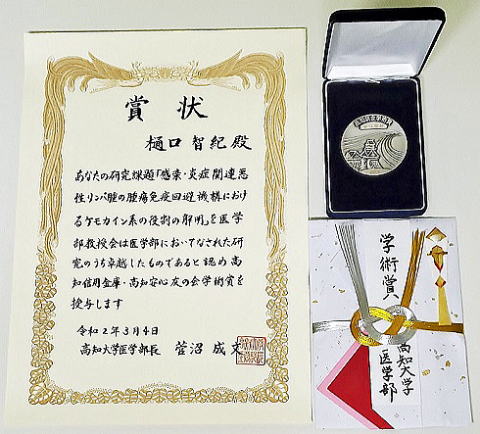 賞状
樋口智紀殿
あなたの研究課題「感染・炎症関連悪
性リンパ腫の腫瘍免疫回避機構におけ
るケモカイン系の役割の解明」を医学
部教授会は医学部においてなされた研
究のうち卓越したものであると認め高
知信用金庫・高知安心友の会学術賞を
授与します
令和2年3月4日
高知大学医学部長 菅沼成文
学術賞
高知大学
医学部